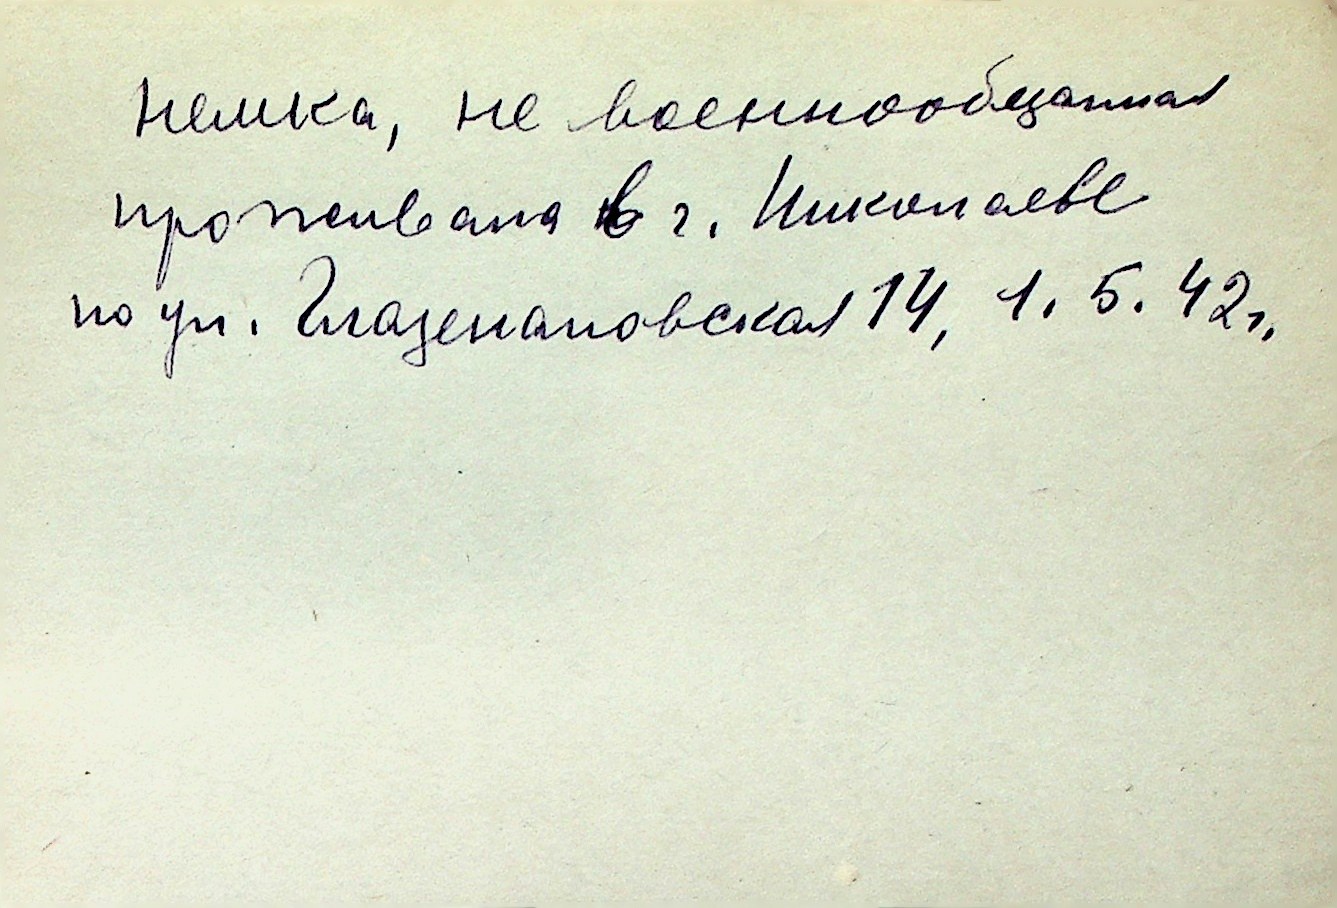 немка, не военнообщанная
проживала в г. Николаеве
по ул. Глазенаповская 14, 1.5.42г.